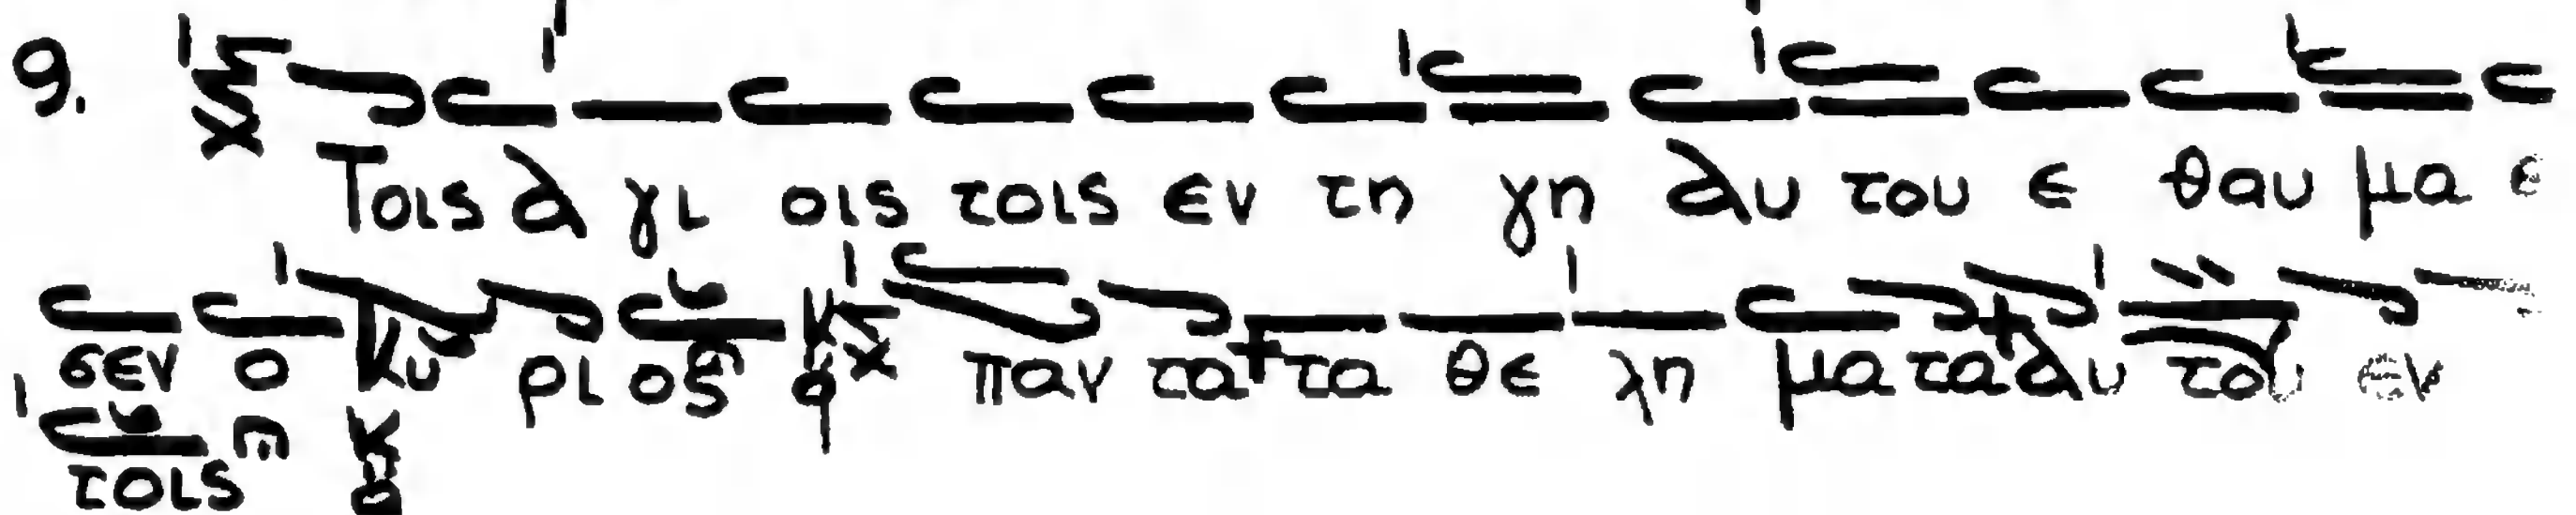 9. Τοις α γι οις τοις εν τη γη αυ του ε θαυ μα
σεν ο Κυ ρι ος παν τα τα θε λη μα τα αυ του εν
τοις